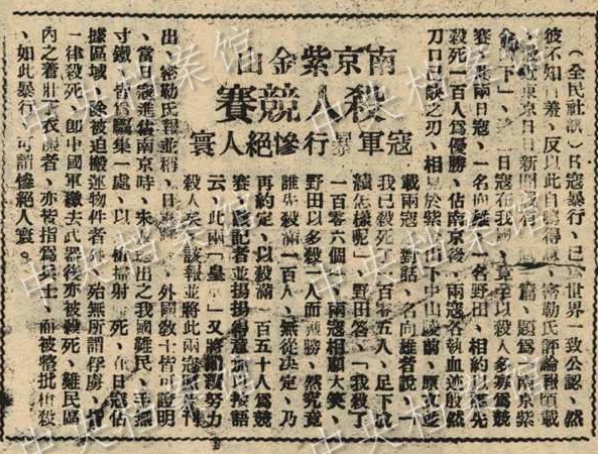 南京紫金山
殺人競賽
寇軍暴行慘絕人寰
(全民社訊)日寇暴行、已為世界一致公認、然
彼不知自羞、反以此自鳴得意、密勒氏評論報頃載
、最近東京日日新聞載有 篇、題爲南京紫
金山下」、 日寇在我國、竟至以殺人多寡爲競
賽、此兩日寇、一名向雄一名野田、相約以誰先
殺死一百人爲優勝、佔南京後、兩寇各執血迹殷然
刀口已缺之刃、相見於紫金山下中山陵前、原文並
載兩寇對話、名向雄者說、「
我已殺死了一百零五人、足下成
績怎樣呢」、野田答、「我殺了
一百零六個」、兩寇相顧大笑、
野田以多殺一人而獲勝、然究竟
誰先殺滿一百人、無從決定、乃
再約定、以殺滿一百五十人爲競
賽、該記者並揚揚得意加以按語
云、此兩「皇軍」又將繼續努力
殺人矣、該報並將此兩寇照片刊
出、密勒氏報並稱、日寇 、外國教士皆可證明
、當日寇進佔南京時、未及逃出之我國難民、手無
寸鐵、皆爲驅集一處、以機槍掃射而死、在日寇佔
據區域、除被迫搬運物件者外、殆無所謂俘虜、皆
一律殺死、即中國軍繳去武器後亦被殺死、難民區
內之着壯丁衣服者、亦被指爲兵士、而被整批槍殺
、如此暴行、可謂慘絕人寰。
中央档案馆